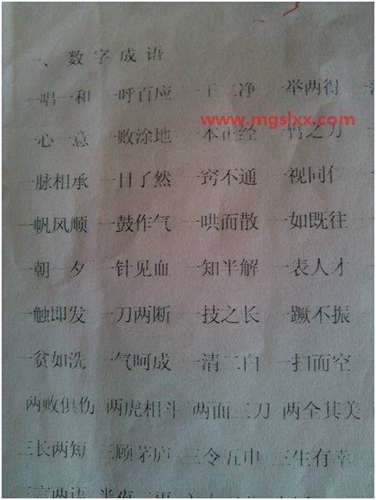 一、数字成语
一唱一和 一呼百应 一干二净 一举两得
www.mgslxx.com
一心一意 一败涂地 一本正经 一臂之力
一脉相承 一目了然 一窍不通 一视同仁
一帆风顺 一鼓作气 一哄而散 一如既往
一朝一夕 一针见血 一知半解 一表人才
一触即发 一刀两断 一技之长 一蹶不振
一贫如洗 一气呵成 一清二白 一扫而空
两败俱伤 两虎相斗 两面三刀 两全其美
三长两短 三顾茅庐 三令五申 三生有幸
三言两语 半夜三更